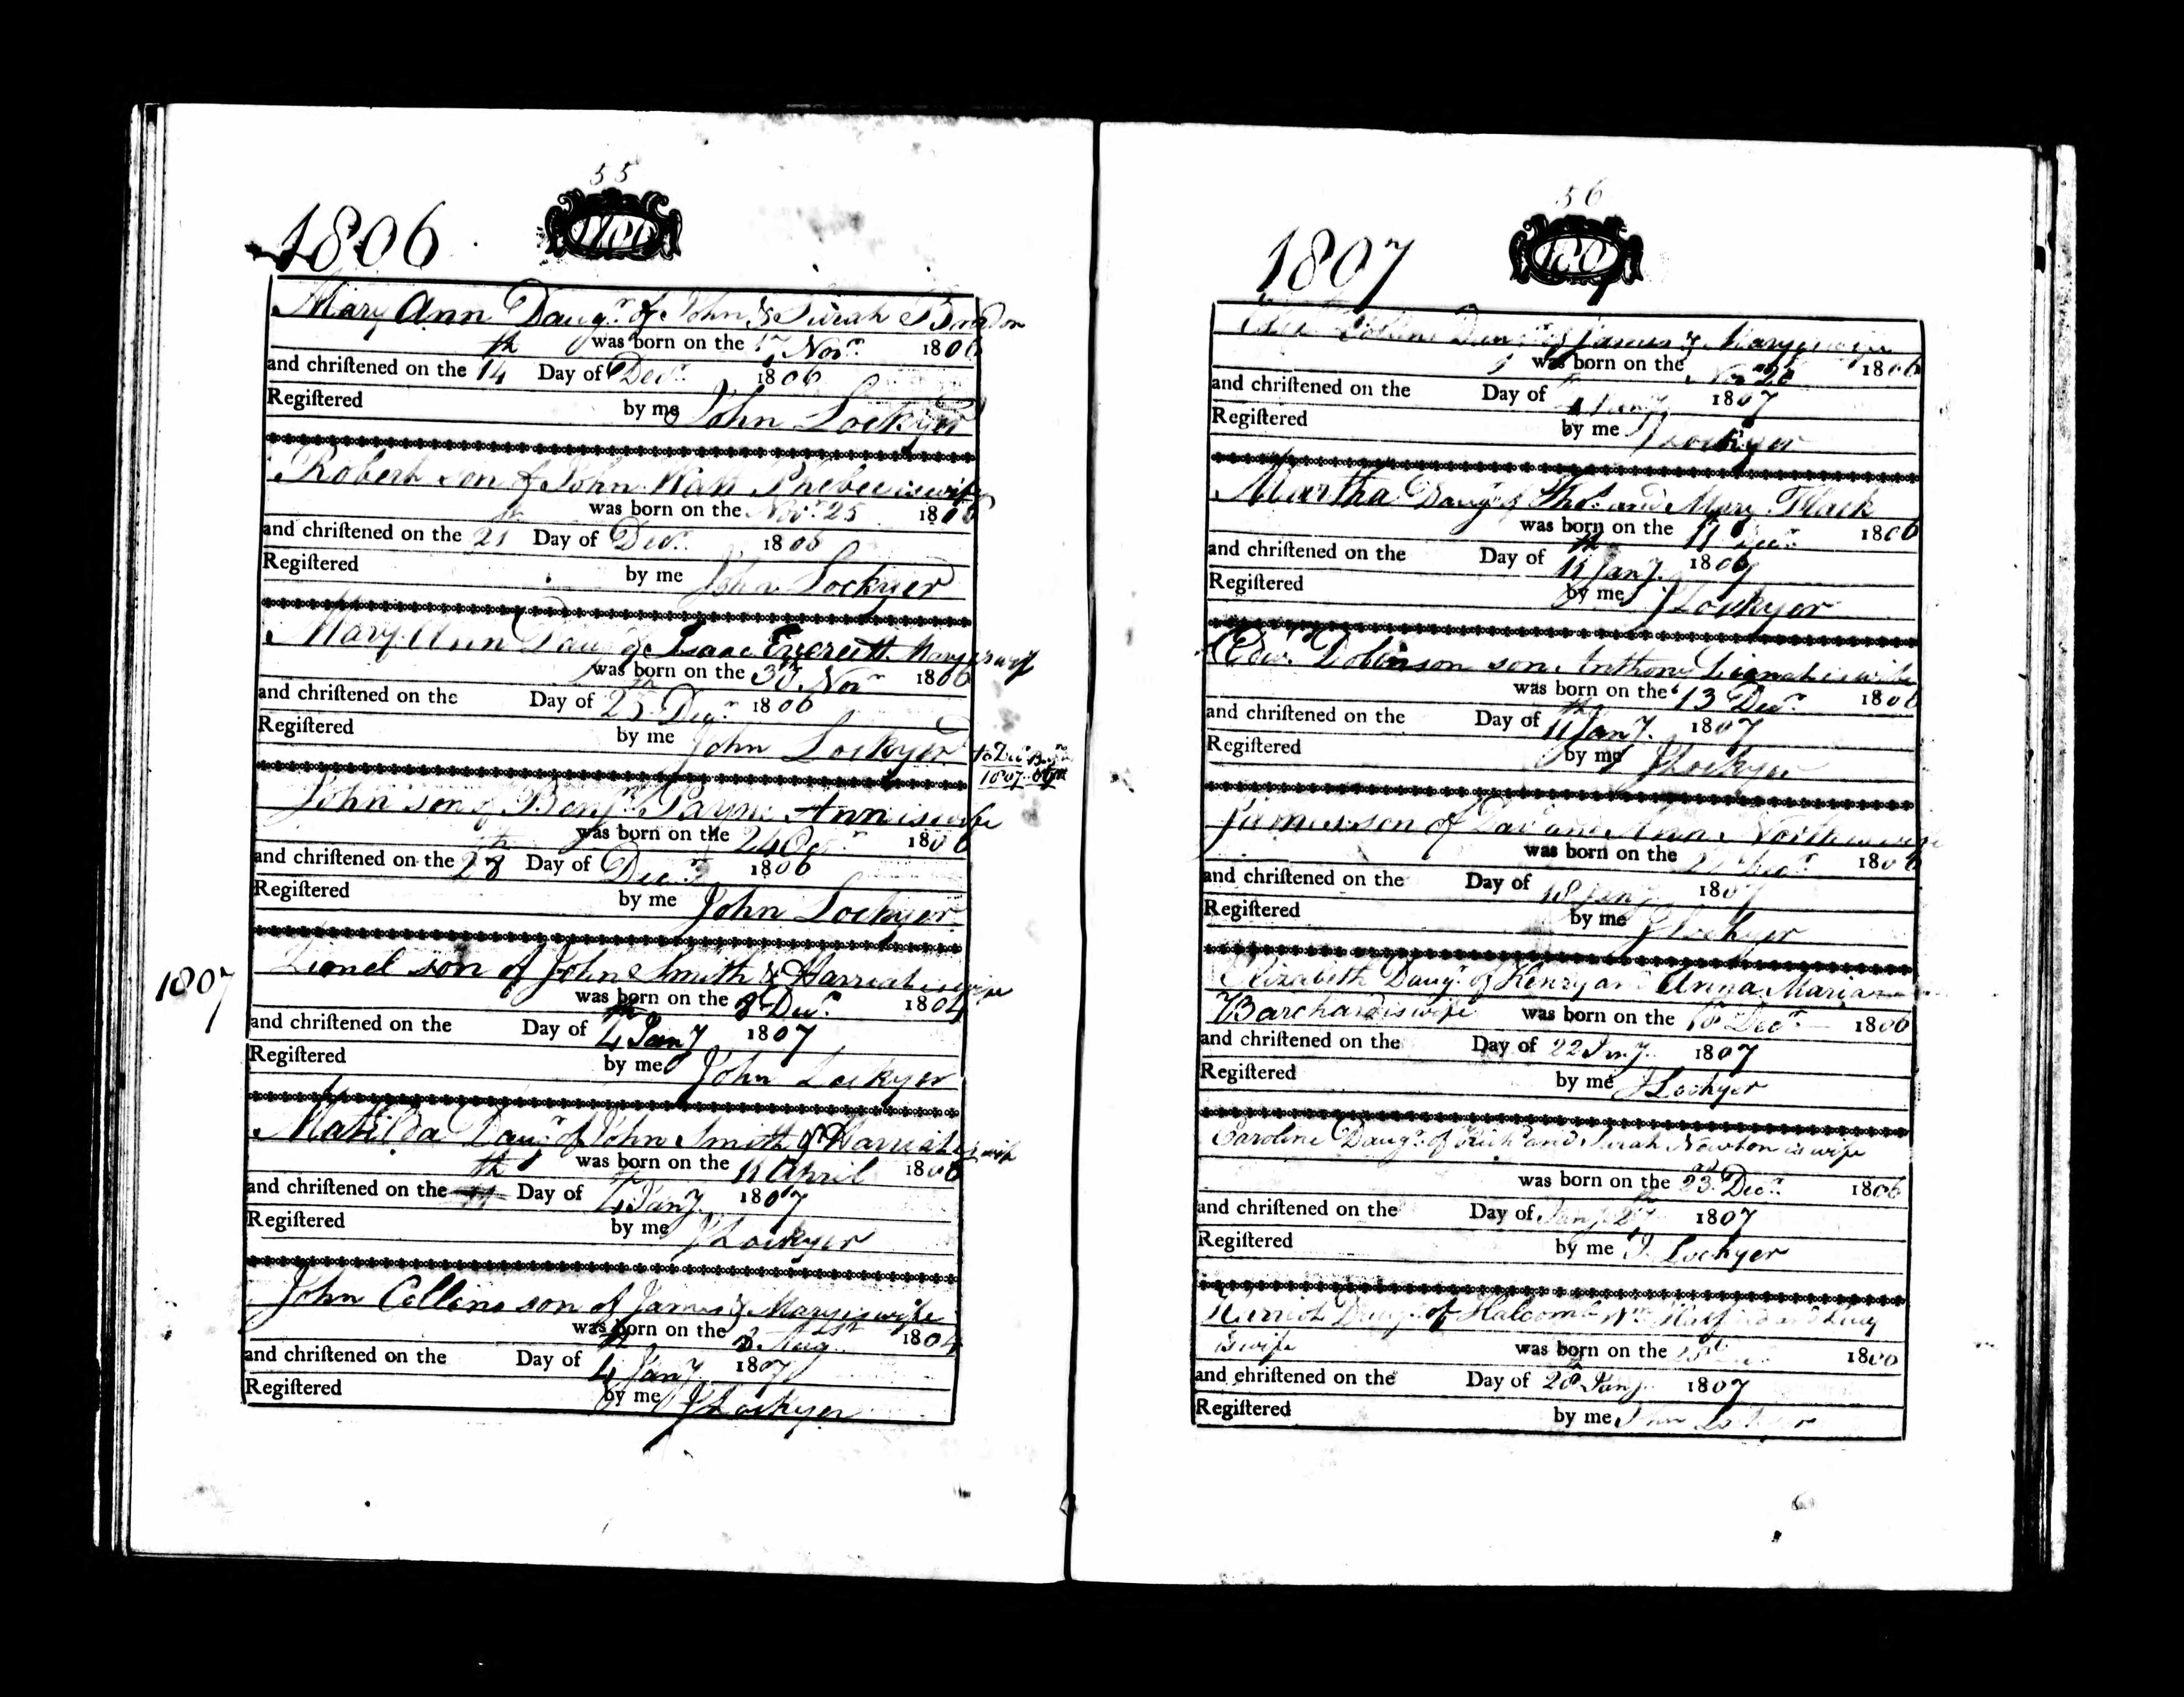 55
1806
Mary Ann Daugr. of John & Sarah
was born on the 17 Novr. 1806
and chriſtened on the 14th Day of Decr. 1806
Regiſtered by me John Lockyer
Robert son of John Wall Phebee is wife
was born on the Novr. 25 1806
and chriſtened on the 21 Day of Decr. 1806
Regiſtered by me John Lockyer
Mary Ann Daur. of Isaac Evereett Mary is wife
was born on the 30th Novr 1806
and chriſtened on the Day of 25th Decr. 1806
Regiſtered by me John Lockyer
to Decr
1807
John son of Benjn. Payne Ann is wife
was born on the 24 Ocr. 1806
and chriſtened on the 28th Day of Decr. 1806
Regiſtered by me John Lockyer
1807
Lionel son of John Smith & Harriat is wife
was born on the 8 Decr. 1804
and chriſtened on the Day of 4th Jany 1807
Regiſtered by me John Lockyer
Matilda Daugr. of John Smith & Harriat is wife
was born on the 11th April 1806
and chriſtened on the Day of 4th Jany. 1807
Regiſtered by me J Lockyer
John Collens son of James & Mary is wife
was born on the Augst. 1804
and chriſtened on the Day of 4th Jany 1807
Regiſtered by me J Lockyer
56
1807
1807
Daugr. of James & Mary is wife
was born on the Novr 26 1806
and chriſtened on the Day of 4 Jany. 1807
Regiſtered by me J Lockyer
Martha Daugr. of Thos. and Mary Flack
was born on the 11 Decr. 1806
and chriſtened on the Day of 11th Jany. 1807
Regiſtered by me J Lockyer
Edwd. Dobinson son Anthony is wife
was born on the 13 Decr. 1806
and chriſtened on the Day of 11th Jany. 1807
Regiſtered by me J Lockyer
James son of and Ann North is wife
was born on the Decr. 1806
and chriſtened on the Day of 18 Jany 1807
Regiſtered by me J Lockyer
Elizabeth Daugr. of Henry and Anna Maria
Barchard is wife was born on the 18 Decr. 1806
and chriſtened on the Day of 22 Jany. 1807
Regiſtered by me J Lockyer
Caroline Daugr. of Richd. and Sarah Newton is wife
was born on the 23rd Decr. 1806
and chriſtened on the Day of Jany 1807
Regiſtered by me J. Lockyer
Harriot Daugr. of Halcomb Wm. and Lucy
is wife was born on the 1806
and chriſtened on the Day of 28th Jany. 1807
Regiſtered by me John Lockyer